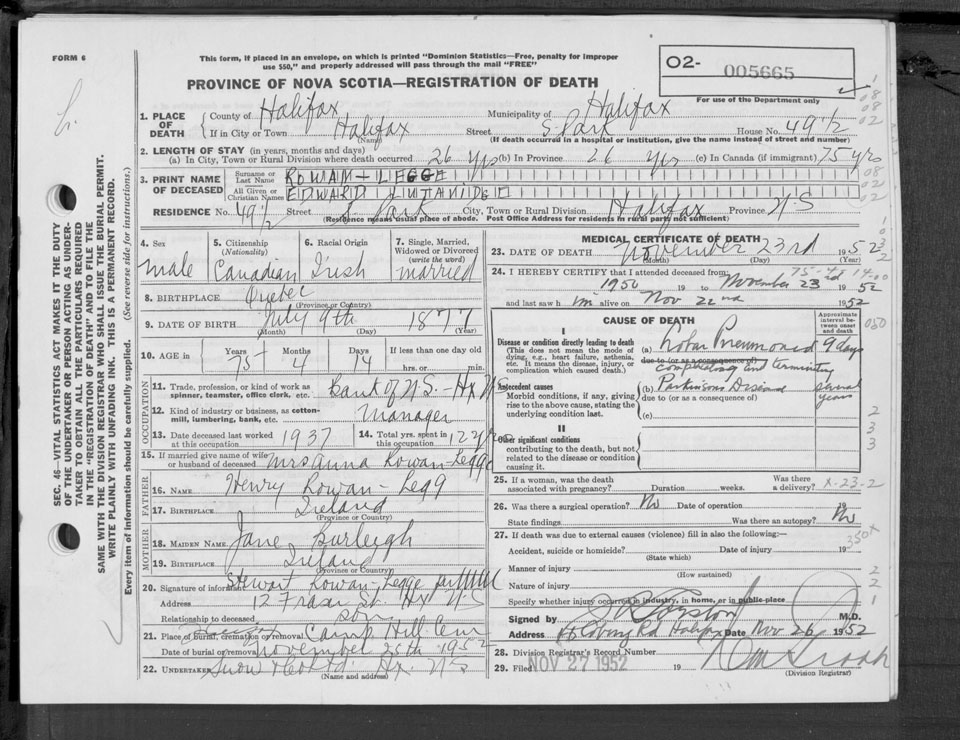 FORM 6
This form, if placed in an envelope, on which is printed "Dominion Statistics—Free, penalty for improper
use $50," and properly addressed will pass through the mail "FREE"
PROVINCE OF NOVA SCOTIA—REGISTRATION OF DEATH
O2- 005665
For use of the Department only
1. PLACE OF DEATH
County of Halifax Municipality of Halifax
If in City or Town Halifax Street S. Park House No. 49 1/2
(Name) (If death occurred in a hospital or institution, give the name instead of street and number)
2. LENGTH OF STAY (in years, months and days)
(a) In City, Town or Rural Division where death occurred 26 yrs (b) In Province 26 yrs (c) In Canada (if immigrant) 75 yrs
3. PRINT NAME OF DECEASED
Surname or Last Name ROWAN-LEGGE
All Given or Christian Names EDWARD
RESIDENCE No. 49 1/2 Street S. Park City, Town or Rural Division Halifax Province N.S
(Residence means usual place of abode. Post Office Address for residents in rural parts not sufficient)
4. Sex
male
5. Citizenship
(Nationality)
Canadian
6. Racial Origin
Irish
7. Single, Married,
Widowed or Divorced
(write the word)
married
8. BIRTHPLACE Quebec
(Province or Country)
9. DATE OF BIRTH July 9th 1877
(Month) (Day) (Year)
10. AGE in
Years Months Days If less than one day old
75 - 4 14 hrs. or min.
OCCUPATION
11. Trade, profession, or kind of work as
spinner, teamster, office clerk, etc. Bank of N.S. - Hx N.S
12. Kind of industry or business, as cotton-
mill, lumbering, bank, etc. Manager
13. Date deceased last worked
at this occupation 1937
14. Total yrs. spent in
this occupation 12 yrs
15. If married give name of wife
or husband of deceased Mrs Anna Rowan-Legge
FATHER
16. NAME Henry Rowan-Legg
17. BIRTHPLACE Ireland
(Province or Country)
MOTHER
18. MAIDEN NAME Jane Burleigh
19. BIRTHPLACE Ireland
(Province or Country)
20. Signature of informant Stewart Rowan-Legge
Address 12 Fraser St. Hx N.S
Relationship to deceased son
21. Place of burial, cremation or removal Camp Hill Cem
Date of burial or removal November 25th 1952
22. UNDERTAKER Snow & Co Ltd Hx. N.S
(Name and address)
SEC. 46—VITAL STATISTICS ACT MAKES IT THE DUTY
OF THE UNDERTAKER OR PERSON ACTING AS UNDER-
TAKER TO OBTAIN ALL THE PARTICULARS REQUIRED
IN THE "REGISTRATION OF DEATH" AND TO FILE THE
SAME WITH THE DIVISION REGISTRAR WHO SHALL ISSUE THE BURIAL PERMIT.
WRITE PLAINLY WITH UNFADING INK. THIS IS A PERMANENT RECORD.
Every item of information should be carefully supplied. (See reverse side for instructions.)
MEDICAL CERTIFICATE OF DEATH
23. DATE OF DEATH November 23rd 1952
(Month) (Day) (Year)
24. I HEREBY CERTIFY that I attended deceased from:
1950 19 to November 23 1952
and last saw him alive on Nov 22nd 1952
CAUSE OF DEATH
Approximate
interval be-
tween onset
and death
I
Disease or condition directly leading to death
(This does not mean the mode of
dying, e.g., heart failure, asthenia,
etc. It means the disease, injury, or
complication which caused death.)
(a) Lobar Pneumonia 9 days
due to (or as a consequence of)
complicating and terminating
Antecedent causes
Morbid conditions, if any, giving
rise to the above cause, stating the
underlying condition last.
(b) Parkinsons Disease several years
due to (or as a consequence of)
(c)
II
Other significant conditions
contributing to the death, but not
related to the disease or condition
causing it.
25. If a woman, was the death
associated with pregnancy? Duration weeks. Was there
a delivery? X-23-2
26. Was there a surgical operation? No Date of operation
State findings Was there an autopsy? No
27. If death was due to external causes (violence) fill in also the following:—
Accident, suicide or homicide? Date of injury 19
(State which)
Manner of injury
(How sustained)
Nature of injury
Specify whether injury occurred in industry, in home, or in public-place
Signed by M.D.
Address Coburg Rd Halifax Date Nov 26 1952
28. Division Registrar's Record Number
29. Filed NOV 27 1952 19
(Division Registrar)